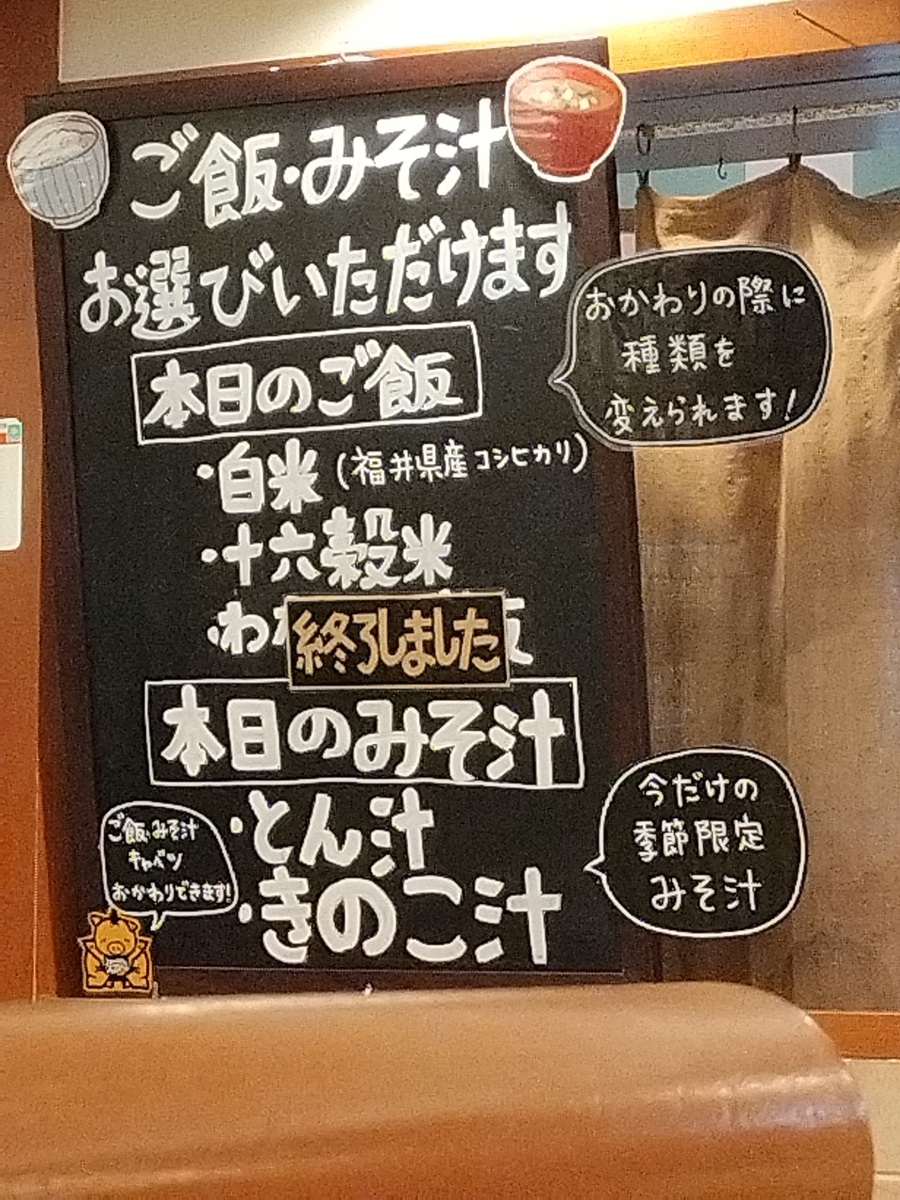 ご飯・みそ汁
お選びいただけます
おかわりの際に
種類を
変えられます!
本日のご飯
・白米(福井県産コシヒカリ)
・十六穀米
・わ
終了しました
本日のみそ汁
・とん汁
・きのこ汁
今だけの
季節限定
みそ汁
ご飯・みそ汁
キャベツ
おかわりできます!